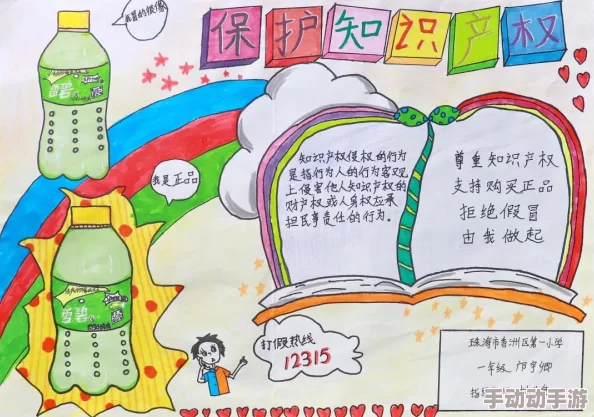 我冒的很像
保护知识产权
雪碧
我是正品
雪碧
知识产权侵权的行为
是指行为人的行为客观
上侵害他人知识产权的
财产权或人身权应承
担民事责任的行为。
尊重知识产权
支持购买正品
拒绝假冒
由我做起
打假热线
12315
珠海市香洲区第一小学
一年级
手动动手游